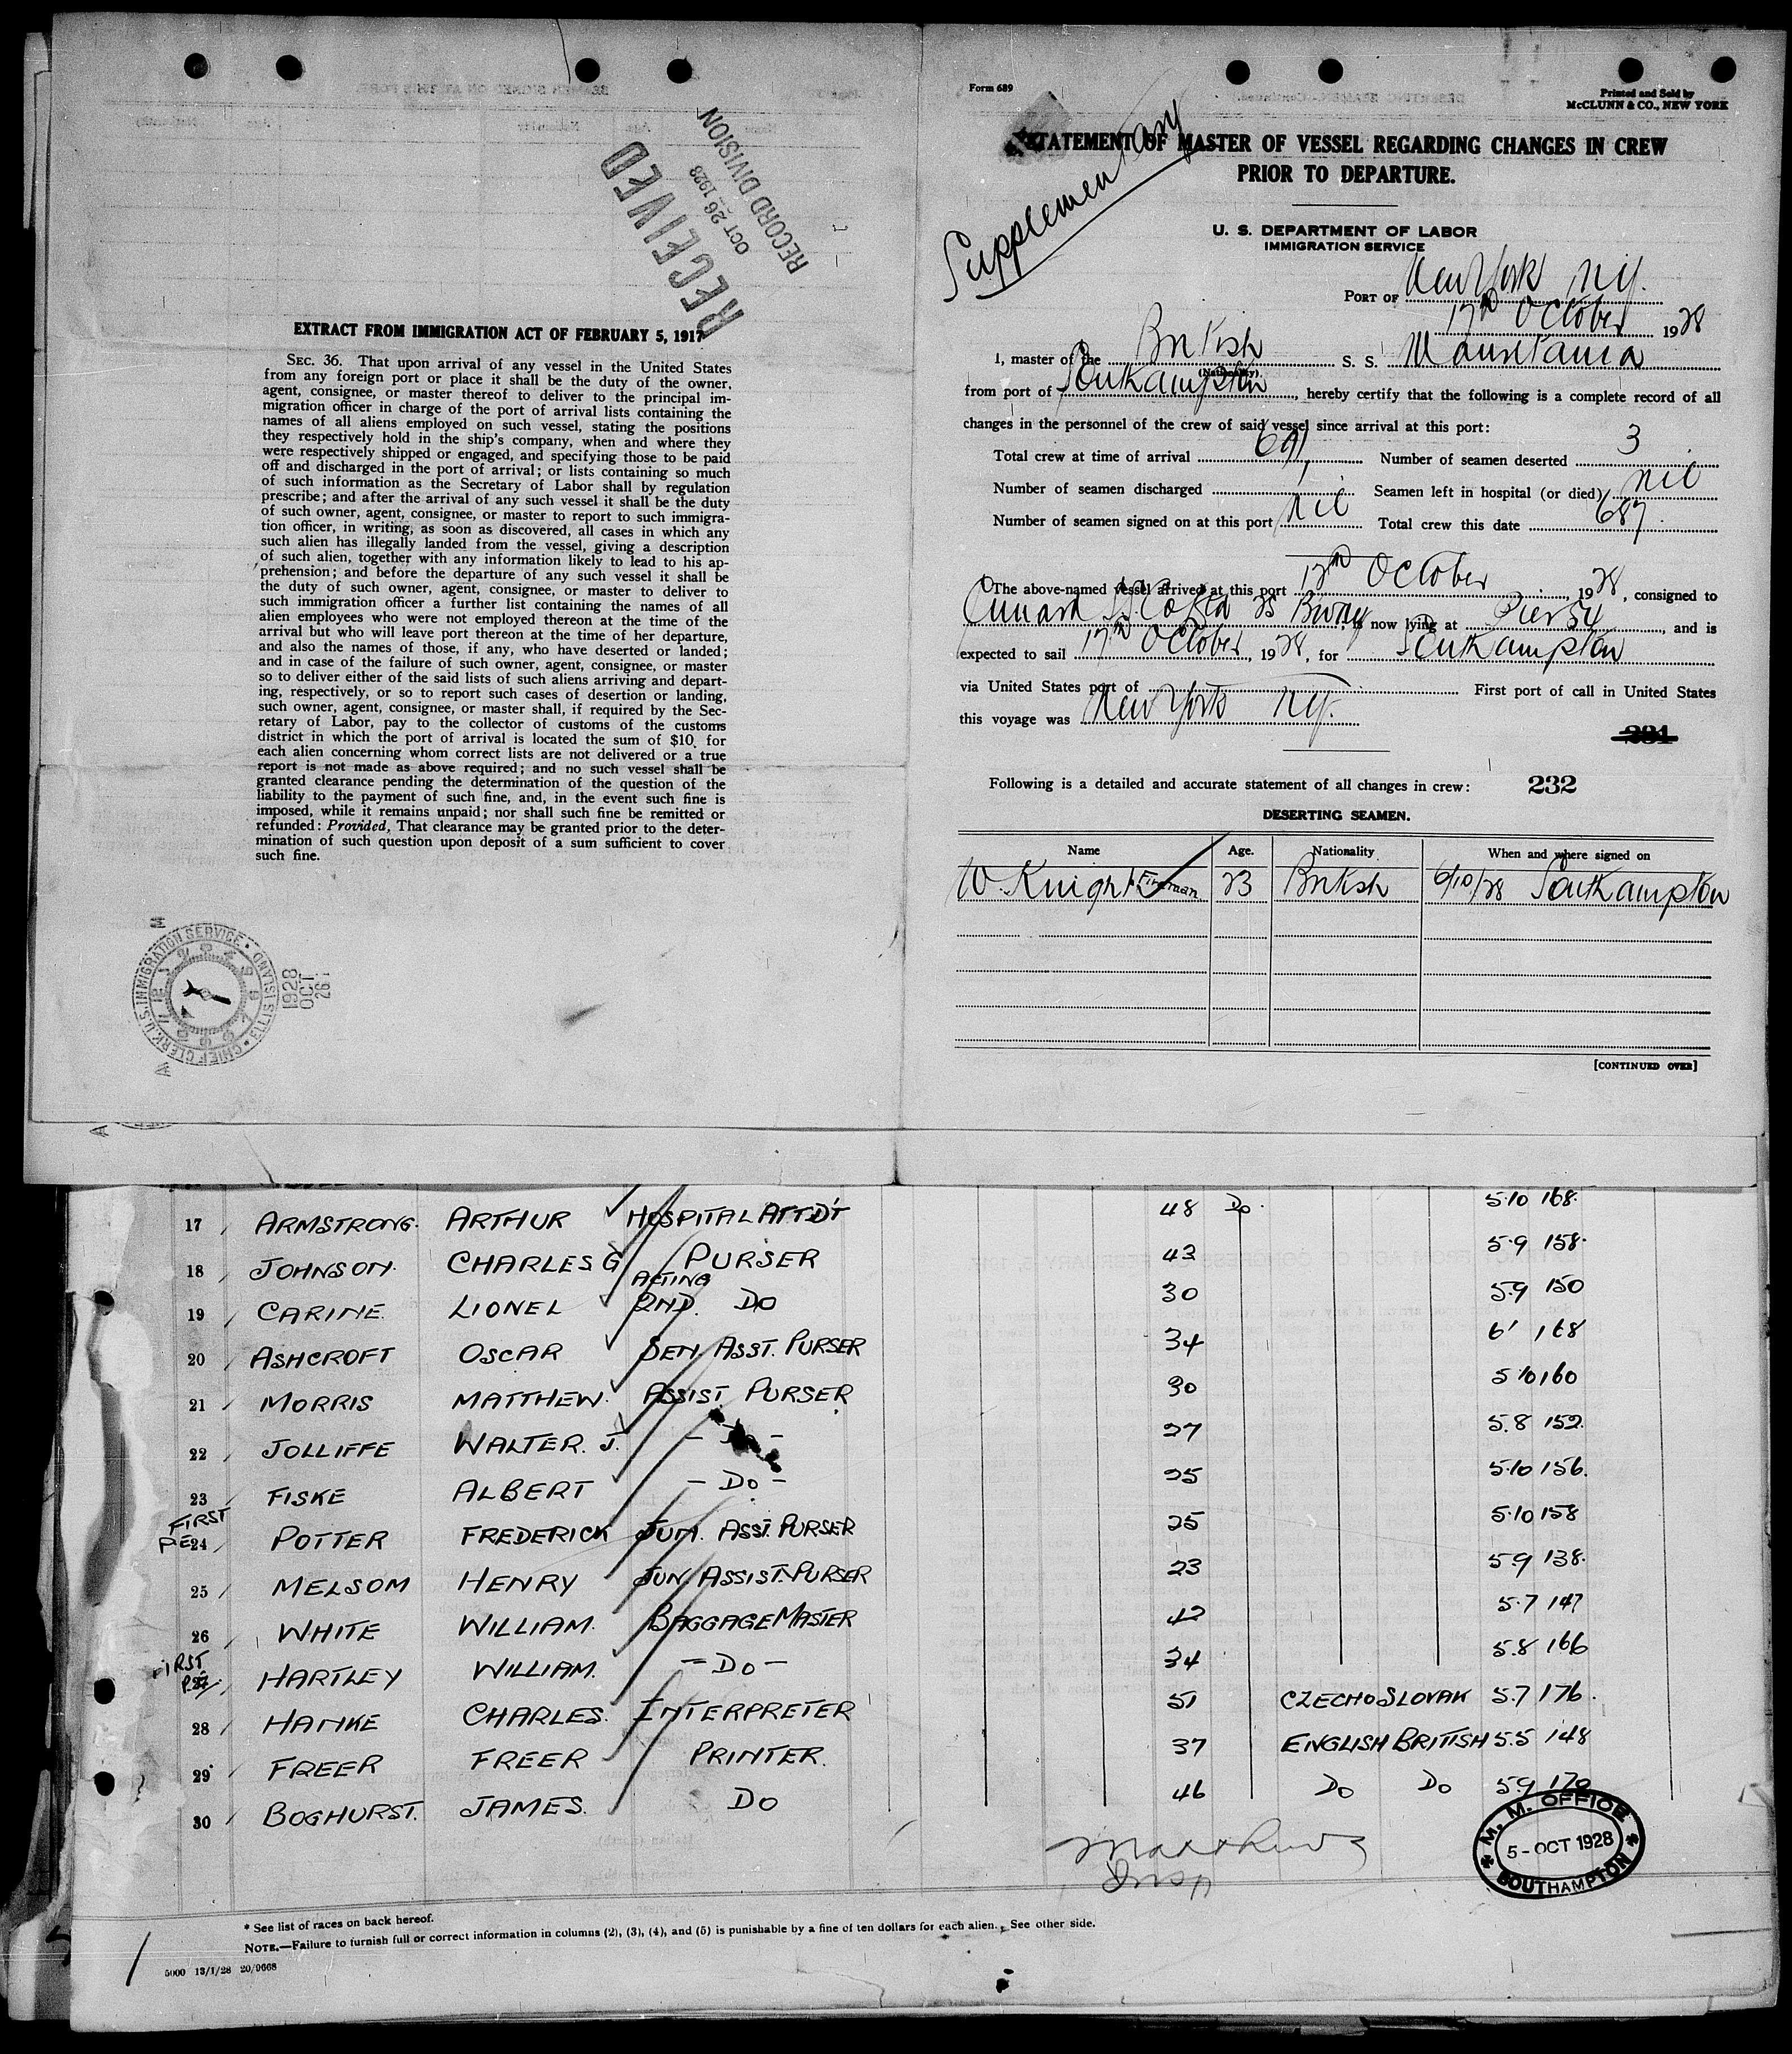 RECEIVED
OCT 26 1928
RECORD DIVISION
EXTRACT FROM IMMIGRATION ACT OF FEBRUARY 5, 1917
SEC. 36. That upon arrival of any vessel in the United States
from any foreign port or place it shall be the duty of the owner,
agent, consignee, or master thereof to deliver to the principal im-
migration officer in charge of the port of arrival lists containing the
names of all aliens employed on such vessel, stating the positions
they respectively hold in the ship's company, when and where they
were respectively shipped or engaged, and specifying those to be paid
off and discharged in the port of arrival; or lists containing so much
of such information as the Secretary of Labor shall by regulation
prescribe; and after the arrival of any such vessel it shall be the duty
of such owner, agent, consignee, or master to report to such immigra-
tion officer, in writing, as soon as discovered, all cases in which any
such alien has illegally landed from the vessel, giving a description
of such alien, together with any information likely to lead to his ap-
prehension; and before the departure of any such vessel it shall be
the duty of such owner, agent, consignee, or master to deliver to
such immigration officer a further list containing the names of all
alien employees who were not employed thereon at the time of the
arrival but who will leave port thereon at the time of her departure,
and also the names of those, if any, who have deserted or landed;
and in case of the failure of such owner, agent, consignee, or master
so to deliver either of the said lists of such aliens arriving and depart-
ing, respectively, or so to report such cases of desertion or landing,
such owner, agent, consignee, or master shall, if required by the Sec-
retary of Labor, pay to the collector of customs of the customs
district in which the port of arrival is located the sum of $10 for
each alien concerning whom correct lists are not delivered or a true
report is not made as above required; and no such vessel shall be
granted clearance pending the determination of the question of the
liability to the payment of such fine, and, in the event such fine is
imposed, while it remains unpaid; nor shall such fine be remitted or
refunded: Provided, That clearance may be granted prior to the deter-
mination of such question upon deposit of a sum sufficient to cover
such fine.
CHIEF CLERK, U.S. IMMIGRATION SERVICE · ELLIS ISLAND
1928
OCT
26
Form 689
Printed and Sold by
McCLUNN & CO., NEW YORK
STATEMENT OF MASTER OF VESSEL REGARDING CHANGES IN CREW
PRIOR TO DEPARTURE.
Supplementary
U. S. DEPARTMENT OF LABOR
IMMIGRATION SERVICE
PORT OF New York N.Y.
17th October 1928
I, master of the British S. S. Mauretania
(Nationality)
from port of Southampton, hereby certify that the following is a complete record of all
changes in the personnel of the crew of said vessel since arrival at this port:
Total crew at time of arrival 691 Number of seamen deserted 3
Number of seamen discharged 1 Seamen left in hospital (or died) nil
Number of seamen signed on at this port nil Total crew this date 687
The above-named vessel arrived at this port 12th October 1928, consigned to
Cunard SS Co Ltd 25 Bway, is now lying at Pier 54, and is
expected to sail 17th October, 1928, for Southampton
via United States port of First port of call in United States
this voyage was New York N.Y.
231
Following is a detailed and accurate statement of all changes in crew: 232
DESERTING SEAMEN.
Name Age. Nationality When and where signed on
W. Knight Fireman 23 British 6/10/28 Southampton
[CONTINUED OVER]
17 ARMSTRONG. ARTHUR HOSPITAL ATTD'T 48 Do. 5·10 168.
18 JOHNSON. CHARLES G PURSER 43 5·9 158.
19 CARINE. LIONEL ACTING 2ND. DO 30 5·9 150
20 ASHCROFT OSCAR SEN. ASST. PURSER 34 6' 168
21 MORRIS MATTHEW. ASSIST. PURSER 30 5·10 160
22 JOLLIFFE WALTER. J. 27 5.8 152.
23 FISKE ALBERT - DO - 25 5·10 156.
FIRST
24 POTTER FREDERICK JUN. ASST. PURSER 25 5·10 158
25 MELSOM HENRY JUN. ASSIST. PURSER 23 5·9 138.
26 WHITE WILLIAM. BAGGAGE MASTER 42 5·7 147
FIRST
27 HARTLEY WILLIAM. - DO - 34 5.8 166
28 HANKE CHARLES. INTERPRETER 51 CZECHO SLOVAK 5.7 176.
29 FREER FREER PRINTER. 37 ENGLISH BRITISH 5.5 148
30 BOGHURST. JAMES. DO 46 DO DO 5·9 170
M. M. OFFICE
5 - OCT 1928
SOUTHAMPTON
* See list of races on back hereof.
NOTE.—Failure to furnish full or correct information in columns (2), (3), (4), and (5) is punishable by a fine of ten dollars for each alien. See other side.
5000 13/1/28 20/9668